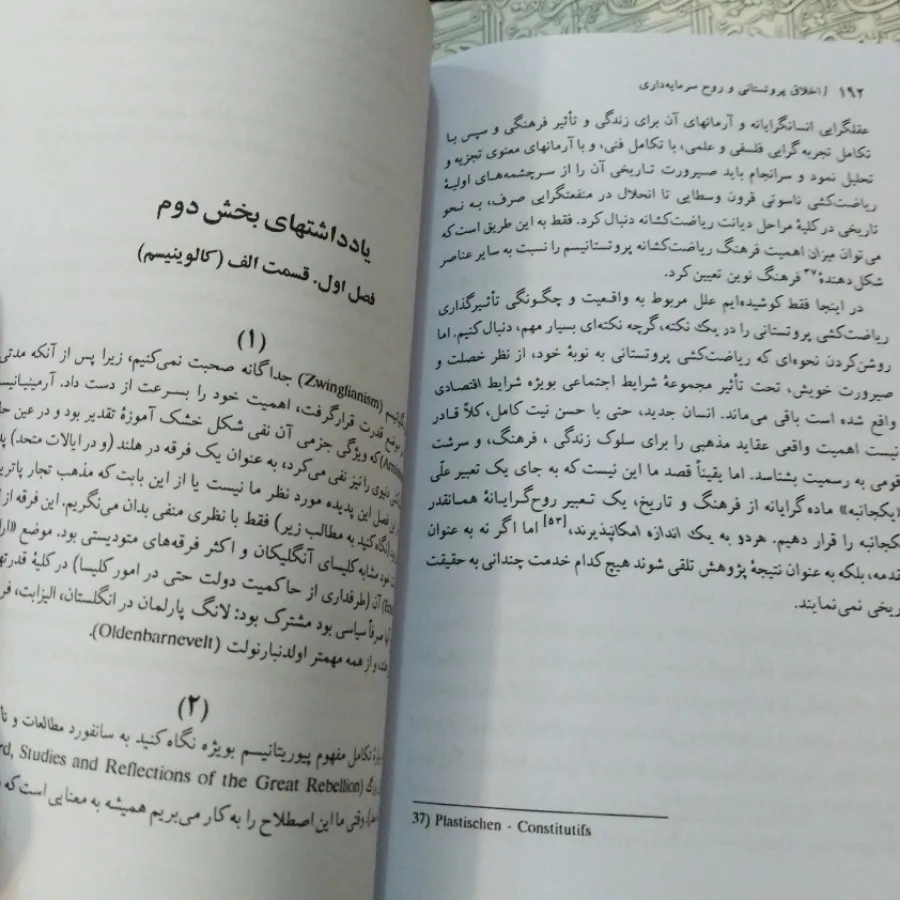 ۱۹۲ / اخلاق پروتستانی و روح سرمایه‌داری
عقلگرایی انسانگرایانه و آرمانهای آن برای زندگی و تأثیر فرهنگی و سپس با
تکامل تجربه گرایی فلسفی و علمی، با تکامل فنی، و با آرمانهای معنوی تجزیه و
تحلیل نمود و سرانجام باید صیرورت تاریخی آن را از سرچشمه‌های اولیهٔ
ریاضت‌کشی ناسوتی قرون وسطایی تا انحلال در منفعتگرایی صرف، به نحو
تاریخی در کلیهٔ مراحل دیانت ریاضت‌کشانه دنبال کرد. فقط به این طریق است که
می‌توان میزان اهمیت فرهنگ ریاضت‌کشانه پروتستانیسم را نسبت به سایر عناصر
شکل‌دهندهٔ۳۷ فرهنگ نوین تعیین کرد.
در اینجا فقط کوشیده‌ایم علل مربوط به واقعیت و چگونگی تأثیرگذاری
ریاضت‌کشی پروتستانی را در یک نکته، گرچه نکته‌ای بسیار مهم، دنبال کنیم. اما
روشن‌کردن نحوه‌ای که ریاضت‌کشی پروتستانی به نوبهٔ خود، از نظر خصلت و
صیرورت خویش، تحت تأثیر مجموعهٔ شرایط اجتماعی بویژه شرایط اقتصادی
واقع شده است باقی می‌ماند. انسان جدید، حتی با حسن نیت کامل، کلاً قادر
نیست اهمیت واقعی عقاید مذهبی را برای سلوک زندگی، فرهنگ، و سرشت
قومی به رسمیت بشناسد. اما یقیناً قصد ما این نیست که به جای یک تعبیر علّی
یکجانبه» ماده گرایانه از فرهنگ و تاریخ، یک تعبیر روح‌گرایانهٔ همانقدر
یکجانبه را قرار دهیم. هردو به یک اندازه امکانپذیرند،[۵۳] اما اگر نه به عنوان
قدمه، بلکه به عنوان نتیجهٔ پژوهش تلقی شوند هیچ کدام خدمت چندانی به حقیقت
ریخی نمی‌نمایند.
37) Plastischen - Constitutifs
یادداشتهای بخش دوم
فصل اول. قسمت الف (کالوینیسم)
(۱)
(Zwinglianism) جداگانه صحبت نمی‌کنیم، زیرا پس از آنکه مدتی
موضع قدرت قرارگرفت، اهمیت خود را بسرعت از دست داد. آرمینیانیس
که ویژگی جزمی آن نفی شکل خشک آموزهٔ تقدیر بود و در عین حا
دنیوی را نیز نفی می‌کرد، به عنوان یک فرقه در هلند (و در ایالات متحد)
این فصل این پدیده مورد نظر ما نیست یا از این بابت که مذهب تجار پاتر
(نگاه کنید به مطالب زیر) فقط با نظری منفی بدان می‌نگریم. این فرقه از
خود مشابه کلیسای آنگلیکان و اکثر فرقه‌های متودیستی بود. موضع «ار
آن (طرفداری از حاکمیت دولت حتی در امور کلیسا) در کلیهٔ قدرتها
صرفاً سیاسی بود مشترک بود: لانگ پارلمان در انگلستان، الیزابت،
و از همه مهمتر اولدنبارنولت (Oldenbarnevelt).
(۲)
تکامل مفهوم پیوریتانیسم بویژه نگاه کنید به سانفورد مطالعات و تأ
rd, Studies and Reflections of the Great Rebellion)
وقتی ما این اصطلاح را به کار می‌بریم همیشه به معنایی است که